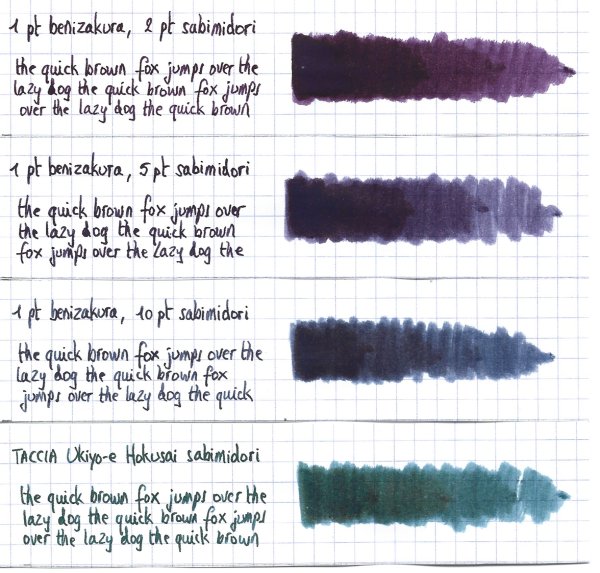 1 pt benizakura, 2 pt sabimidori
the quick brown fox jumps over the
lazy dog the quick brown fox jumps
over the lazy dog the quick brown
1 pt benizakura, 5 pt sabimidori
the quick brown fox jumps over
the lazy dog the quick brown
fox jumps over the lazy dog the
1 pt benizakura, 10 pt sabimidori
the quick brown fox jumps over the
lazy dog the quick brown fox
jumps over the lazy dog the quick
TACCIA Ukiyo-e Hokusai sabimidori
the quick brown fox jumps over the
lazy dog the quick brown fox jumps
over the lazy dog the quick brown